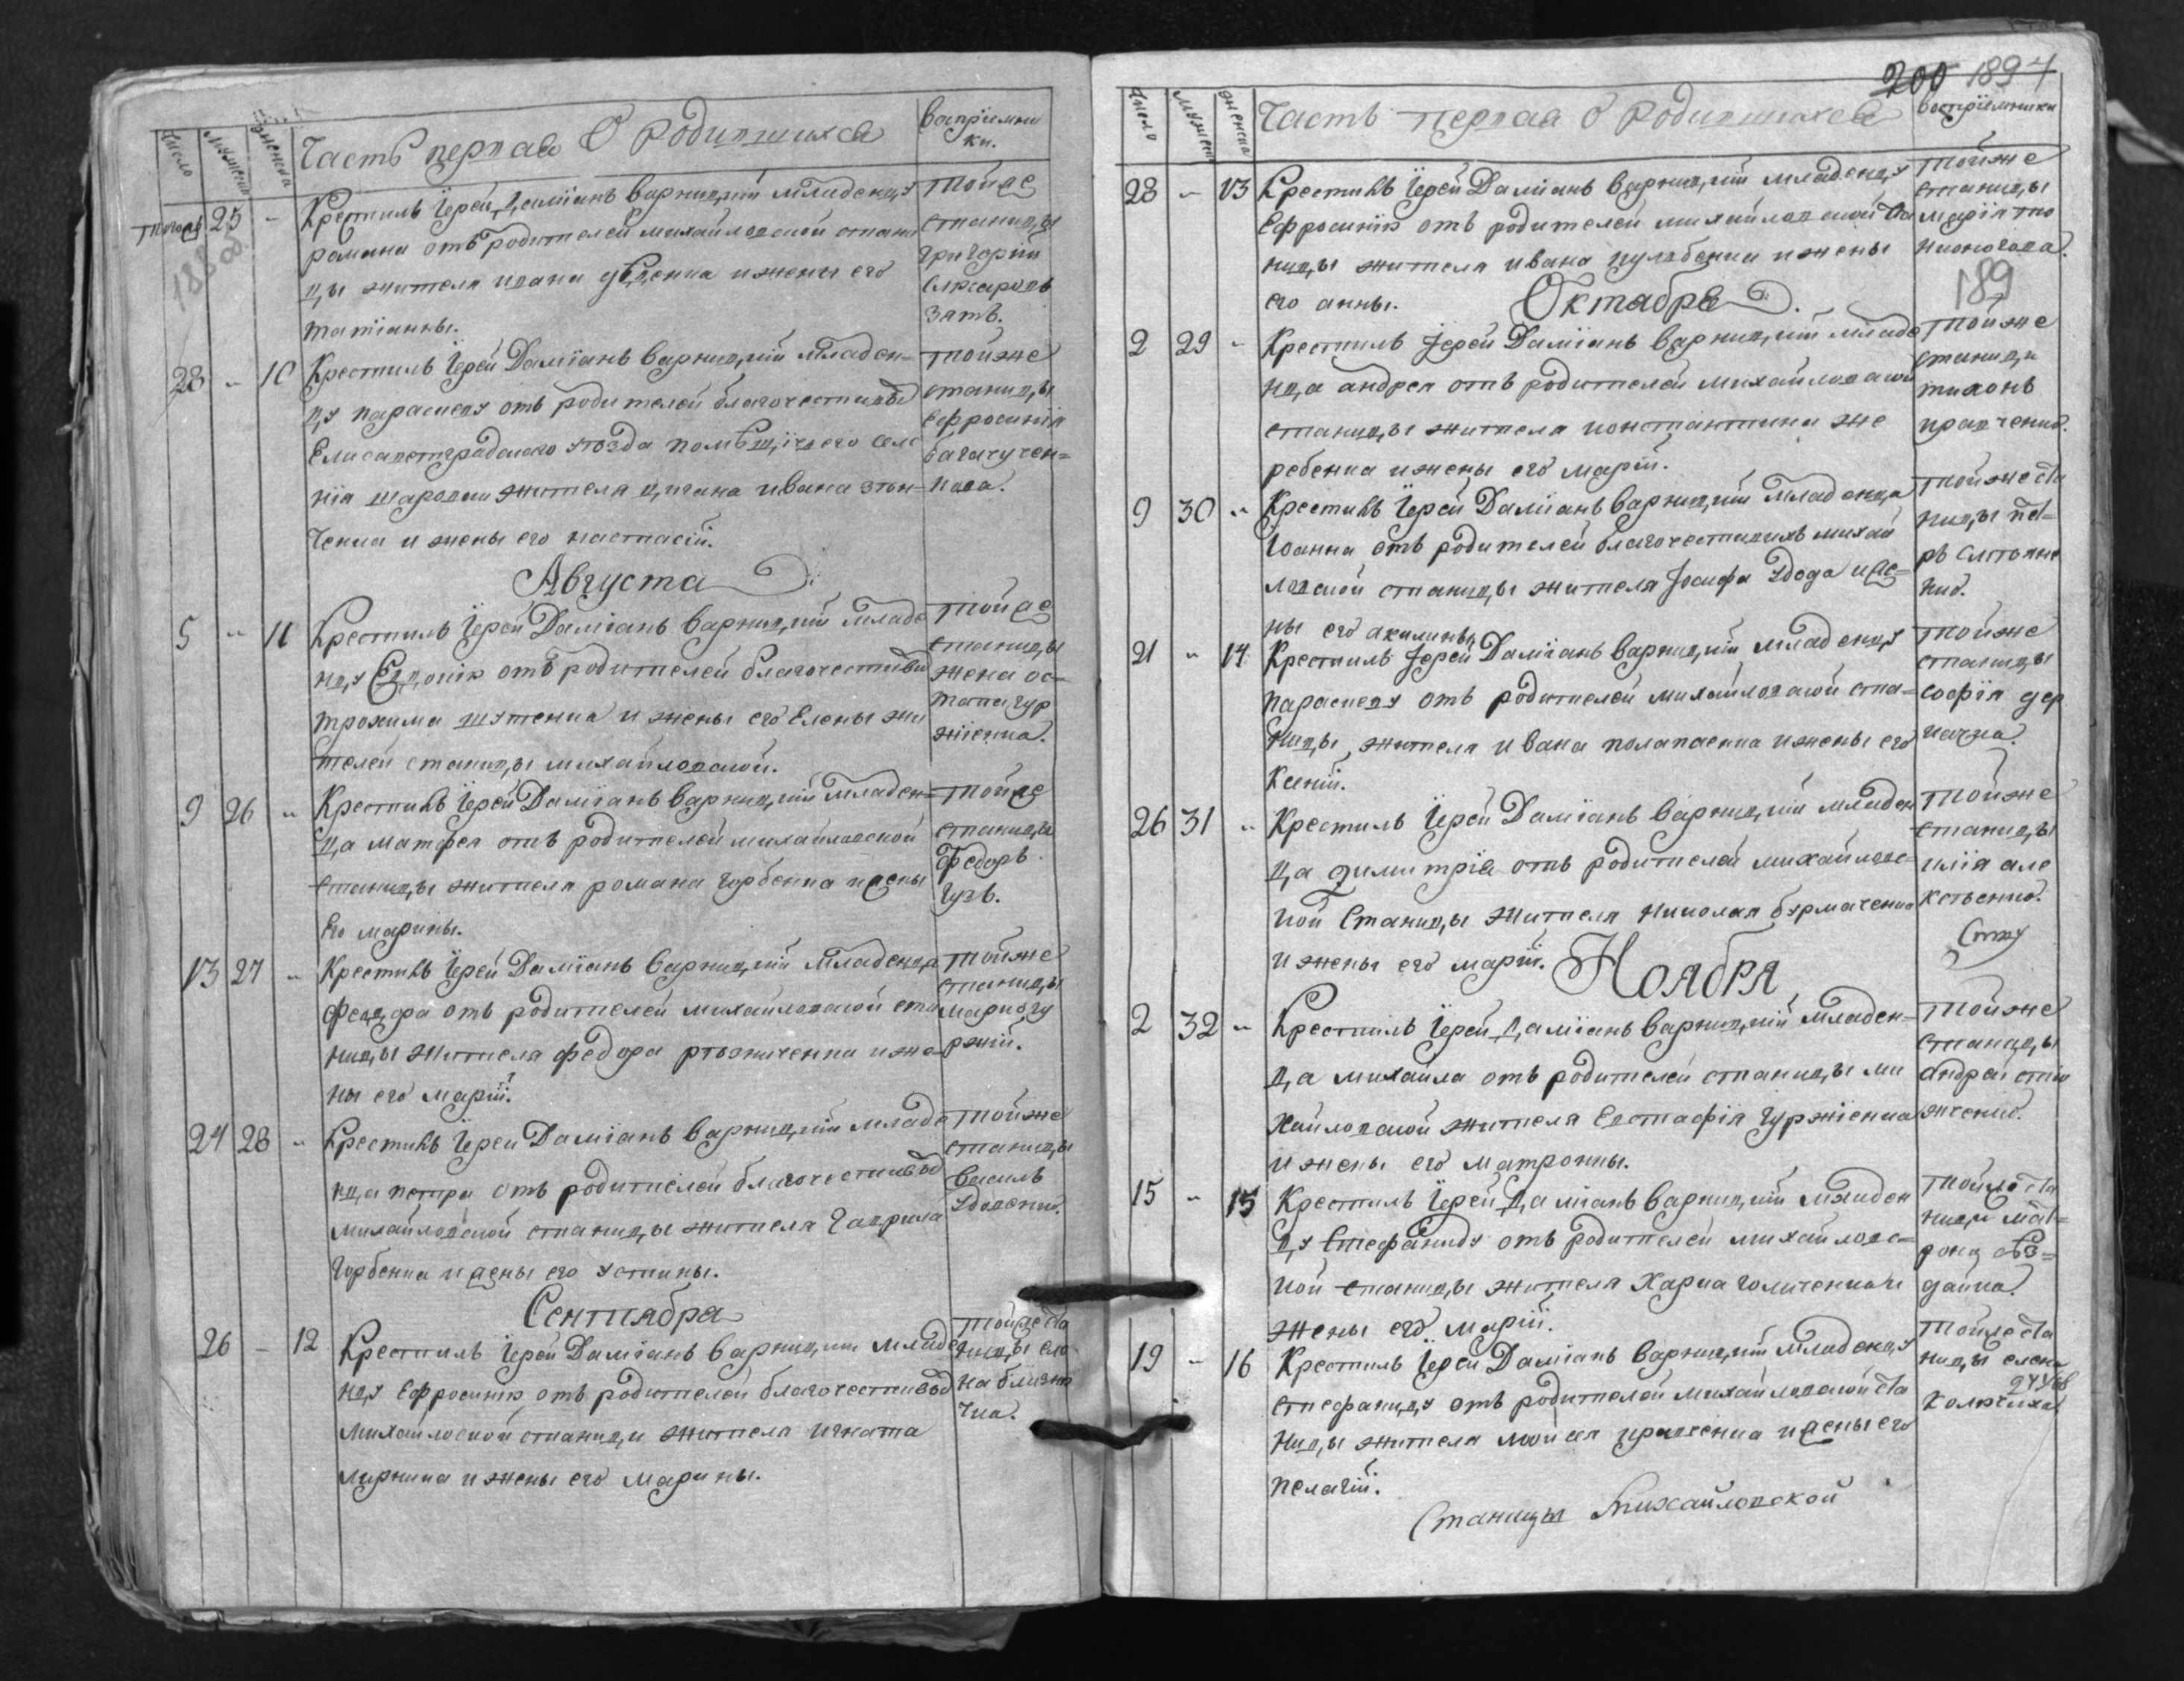 число
мужеск
женска
Часть первая О родившихся
воспріемни
ки.
тогожъ 25 - Крестилъ Іерей Даміанъ варницкій младенца
романа отъ родителей михайловской стани
цы жителя ивана
и жены его
татіанны.
тойже
станицы
григорій
зать.
28 - 10 Крестилъ Іерей Даміанъ варницкій младен=
цу параскеву отъ родителей благочестивыхъ
Елисаветградскаго уезда помѣщичего селе
нія жителя цигана ивана
ченка и жены его настасіи.
тойже
станицы
ефросинія
Августа
5 - 11 Крестилъ Іерей Даміанъ варницкій младе
нцу Евдокію отъ родителей благочестивы
трохима шутенка и жены его Елены жи
телей станицы михайловской.
тойже
станицы
жена ос=
тапа гур
жіенка.
9 26 - Крестилъ Іерей Даміанъ варницкій младен=
ца матфея отъ родителей михайловской
станицы жителя романа горбенка и жены
Его марины.
тойже
станицы
Федоръ
гузъ.
13 27 - Крестилъ Іерей Даміанъ варницкій младенца
отъ родителей михайловской ста
ницы жителя федора и же
ны его маріи.
тойже
станицы
24 28 - Крестилъ Іерей Даміанъ варницкій младе
нца петра отъ родителей благочестивыхъ
михайловской станицы жителя гаврила
горбенка и жены его устины.
тойже
станицы
василь
Удовенко.
Сентября
26 - 12 Крестилъ Іерей Даміанъ варницкій младе
нцу ефросинію отъ родителей благочестивыхъ
михайловской станицы жителя игната
лирника и жены его марины.
тойже ста
ницы еле
на близню
чка.
200 1894
189
число
мужеск
женска
Часть первая О родившихся
воспріемники
28 - 13 Крестилъ Іерей Даміанъ варницкій младенцу
Ефросинію отъ родителей михайловской ста
ницы жителя ивана кулябенка и жены
его анны.
тойже
станицы
марія
Октября
2 29 - Крестилъ Іерей Даміанъ варницкій младе
нца андрея отъ родителей михайловской
станицы жителя константина же
ребенка и жены его маріи.
тойже
станицы
тихонъ
кравченко.
9 30 - Крестилъ Іерей Даміанъ варницкій младенца
Іоанна отъ родителей благочестивыхъ михай
ловской станицы жителя Іосифа Удода и же=
ны его акилины.
тойже ста
ницы пет=
ръ
21 - 14 Крестилъ Іерей Даміанъ варницкій младенцу
параскеву отъ родителей михайловской ста=
ницы жителя ивана полапаенка и жены его
Ксеніи.
тойже
станицы
софія дер
качка.
26 31 - Крестилъ Іерей Даміанъ варницкій младен
ца димитрія отъ родителей михайловс=
кой Станицы жителя николая бурмаченка
и жены его маріи.
тойже
станицы
илія але
ксѣенко.
Ноября
2 32 - Крестилъ Іерей Даміанъ варницкій младен=
ца михаила отъ родителей станицы ми
хайловской жителя Евстафія гуржіенка
и жены его матронны.
тойже
станицы
андрей
15 - 15 Крестилъ Іерей Даміанъ варницкій младен
цу Стефаниду отъ родителей михайловс=
кой станицы жителя Харка голиченка и
жены его маріи.
тойже ста
ницы мат=
рона
19 - 16 Крестилъ Іерей Даміанъ варницкій младенцу
стефаниду отъ родителей михайловской ста
ницы жителя моисея кравченка и жены его
пелагіи.
тойже ста
ницы елена
Станицы Михайловской